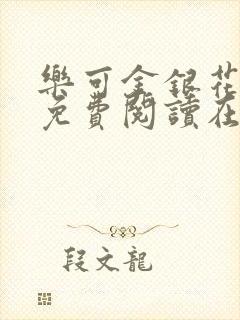 樂可金銀花
免費閱讀在
段文龍